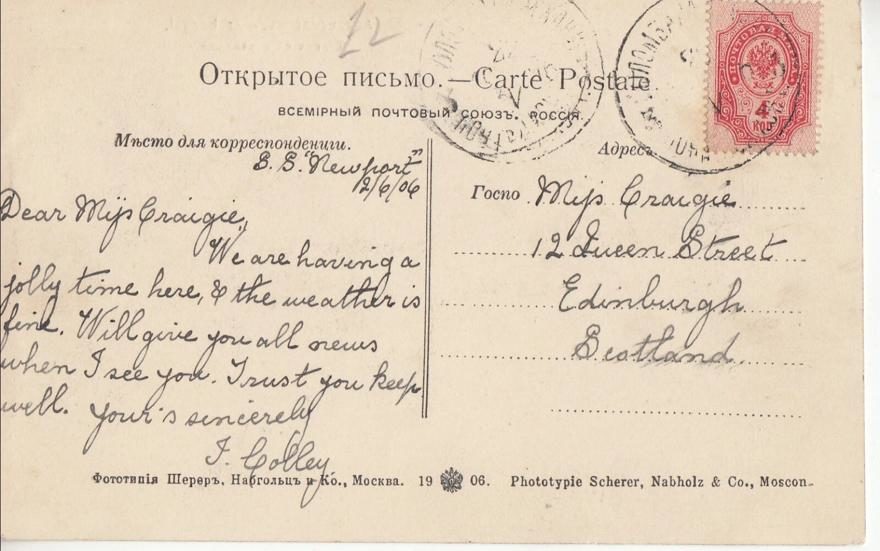 12
Открытое письмо.—Carte Postale.
ВСЕМІРНЫЙ ПОЧТОВЫЙ СОЮЗЪ. РОССІЯ.
Мѣсто для корреспонденціи.
S.S. "Newport"
2/6/06
Dear Miss Craigie,
We are having a
jolly time here, & the weather is
fine. Will give you all news
when I see you. Trust you keep
well. Your's sincerely
J. Colley
Адресъ
Госпо
Miss Craigie
12 Queen Street
Edinburgh
Scotland
ПОЧТОВАЯ МАРКА
4
КОП
Фототипія Шереръ, Набгольцъ и Ко., Москва. 19 06. Phototypie Scherer, Nabholz & Co., Moscou